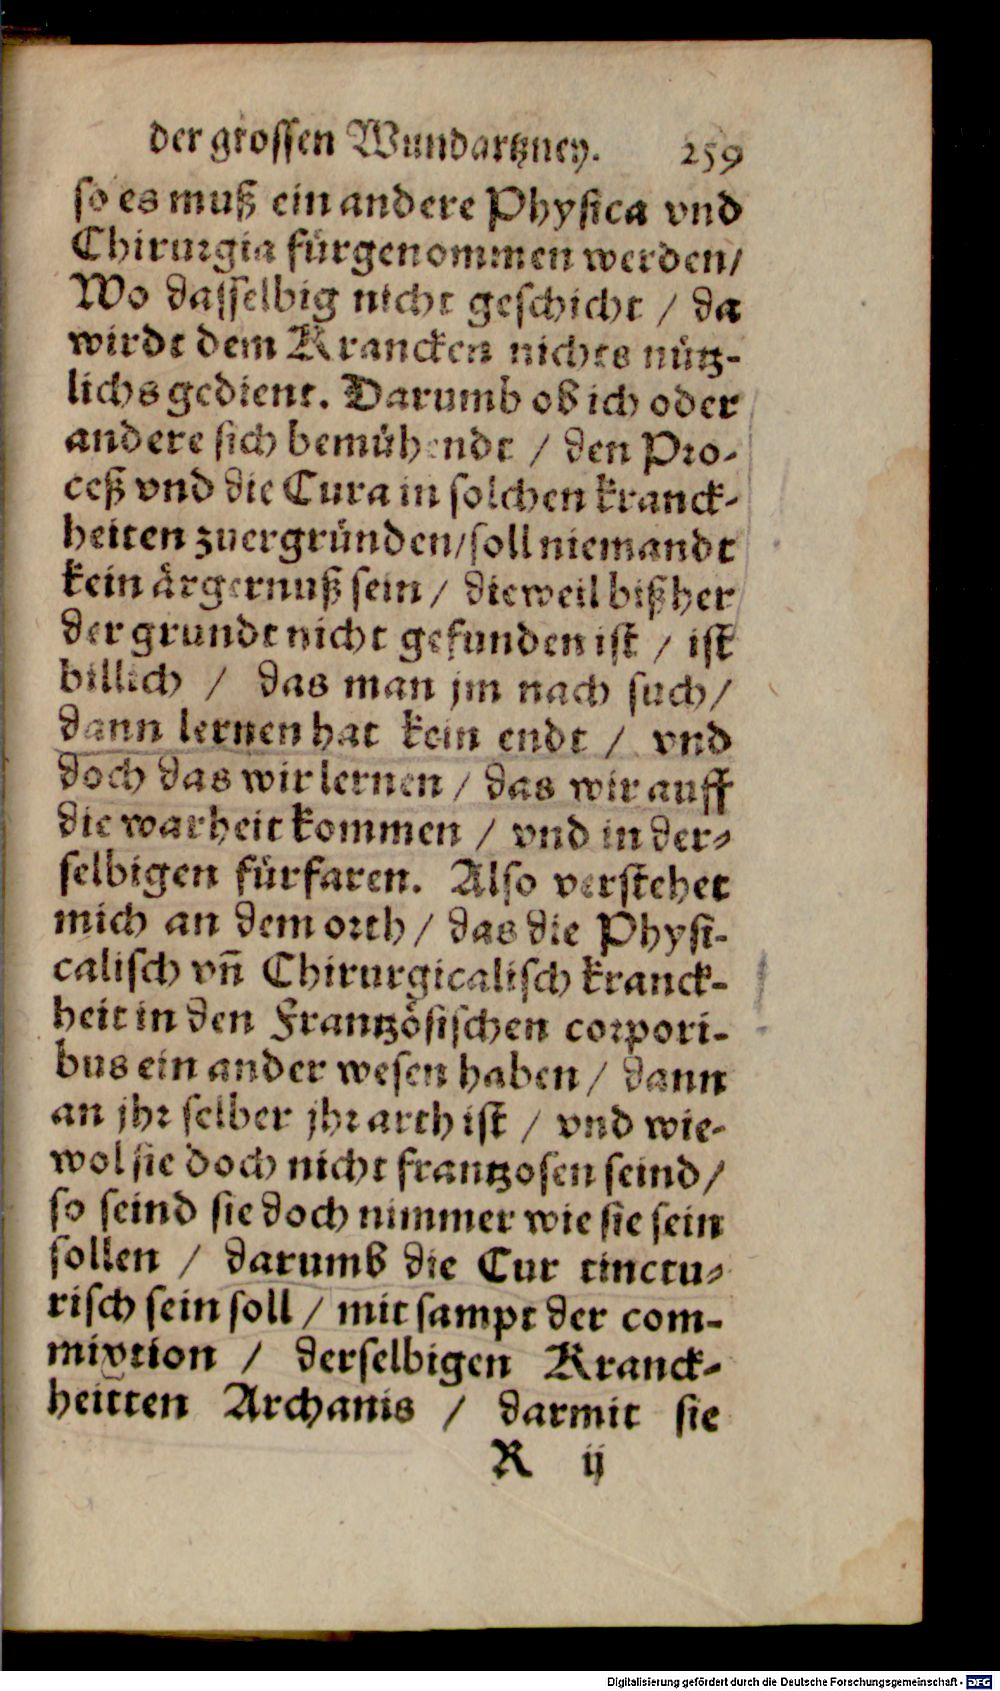 der grossen Wundartzney. 259
so es muß ein andere Physica vnd
Chirurgia fürgenommen werden/
Wo dasselbig nicht geschicht / da
wirdt dem Krancken nichts nütz-
lichs gedient. Darumb ob ich oder
andere sich bemühendt / den Pro-
ceß vnd die Cura in solchen kranck-
heiten zuergründen/soll niemandt
kein ärgernuß sein / dieweil bißher
der grundt nicht gefunden ist / ist
billich / das man jm nach such/
dann lernen hat kein endt / vnd
doch das wir lernen / das wir auff
die warheit kommen / vnd in der-
selbigen fürfaren. Also verstehet
mich an dem orth / das die Physi-
calisch vñ Chirurgicalisch kranck-
heit in den Frantzösischen corpori-
bus ein ander wesen haben / dann
an jhr selber jhr arth ist / vnd wie-
wol sie doch nicht frantzosen seind/
so seind sie doch nimmer wie sie sein
sollen / darumb die Cur tinctu-
risch sein soll / mit sampt der com-
mixtion / derselbigen Kranck-
heitten Archanis / darmit sie
R ij
Digitalisierung gefördert durch die Deutsche Forschungsgemeinschaft - DFG